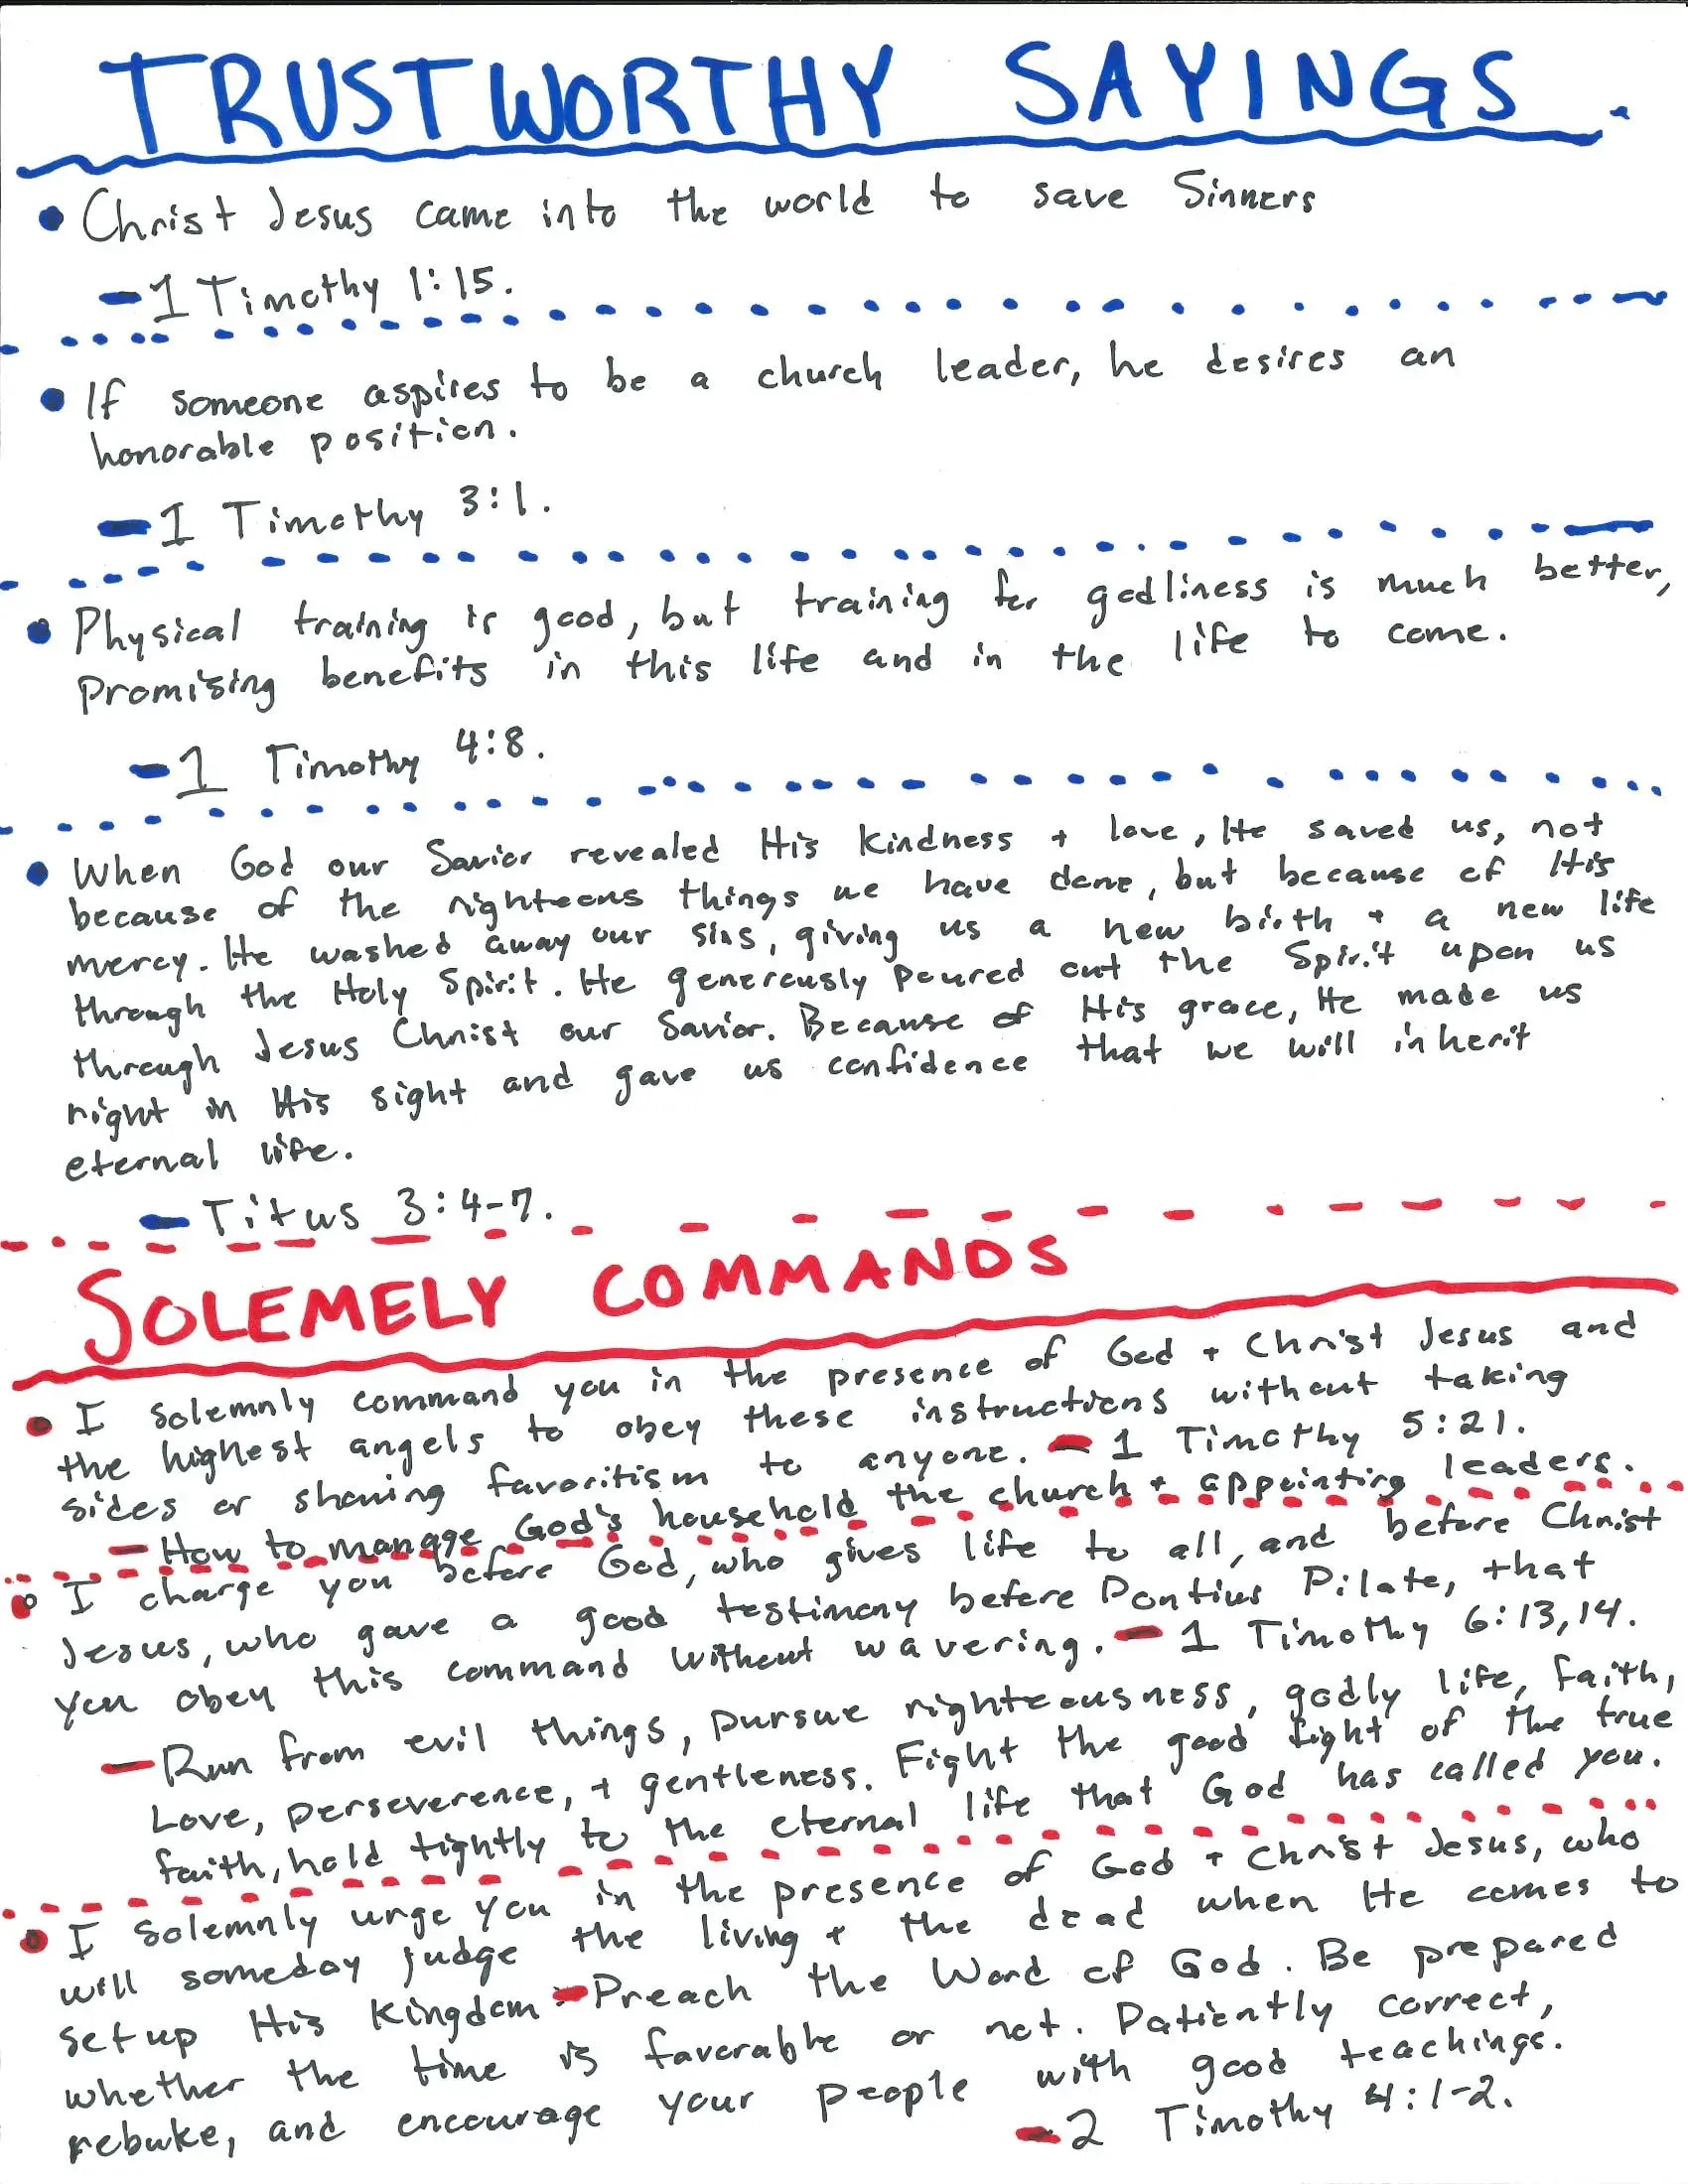 TRUSTWORTHY SAYINGS.
• Christ Jesus came into the world to save Sinners
- 1 Timothy 1:15.
• If someone aspires to be a church leader, he desires an
honorable position.
- 1 Timothy 3:1.
• Physical training is good, but training for godliness is much better,
Promising benefits in this life and in the life to come.
- 1 Timothy 4:8.
• When God our Savior revealed His kindness + love, He saved us, not
because of the righteous things we have done, but because of His
mercy. He washed away our sins, giving us a new birth + a new life
through the Holy Spirit. He generously poured out the Spirit upon us
through Jesus Christ our Savior. Because of His grace, He made us
right in His sight and gave us confidence that we will inherit
eternal life.
- Titus 3:4-7.
SOLEMELY COMMANDS
• I solemnly command you in the presence of God + Christ Jesus and
the highest angels to obey these instructions without taking
sides or showing favoritism to anyone. - 1 Timothy 5:21.
- How to manage God's household the church + appointing leaders.
• I charge you before God, who gives life to all, and before Christ
Jesus, who gave a good testimony before Pontius Pilate, that
you obey this command without wavering. - 1 Timothy 6:13,14.
- Run from evil things, pursue righteousness, godly life, faith,
Love, perseverence, + gentleness. Fight the good fight of the true
faith, hold tightly to the eternal life that God has called you.
• I solemnly urge you in the presence of God + Christ Jesus, who
will someday judge the living + the dead when He comes to
set up His Kingdom - Preach the Word of God. Be prepared
whether the time is favorable or not. Patiently correct,
rebuke, and encourage your people with good teachings.
- 2 Timothy 4:1-2.